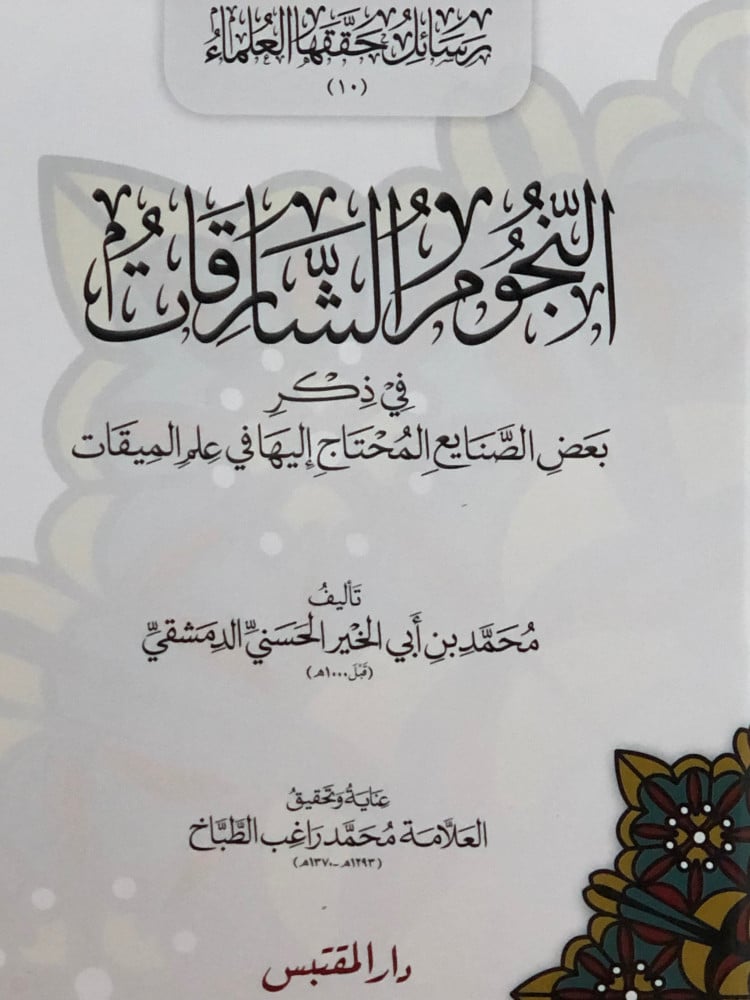 رَسَائِلُ حَقَّقَهَا العُلَمَاءُ
(١٠)
النُّجُومُ الشَّارِقَاتُ
فِي ذِكْرِ
بَعْضِ الصَّنَايِعِ المُحْتَاجِ إِليهَا فِي عِلمِ المِيقَات
تَأليفُ
مُحَمَّد بنِ أَبي الخَيْر الحَسَنيِّ الدِمَشقيِّ
(قَبْلَ ١٠٠٠هـ)
عِنَايَةُ وَتَحقِيقُ
العَلَّامَة مُحَمَّد رَاغِب الطَّبَّاخ
(١٢٩٣هـ-١٣٧٠هـ)
دار المقتبس